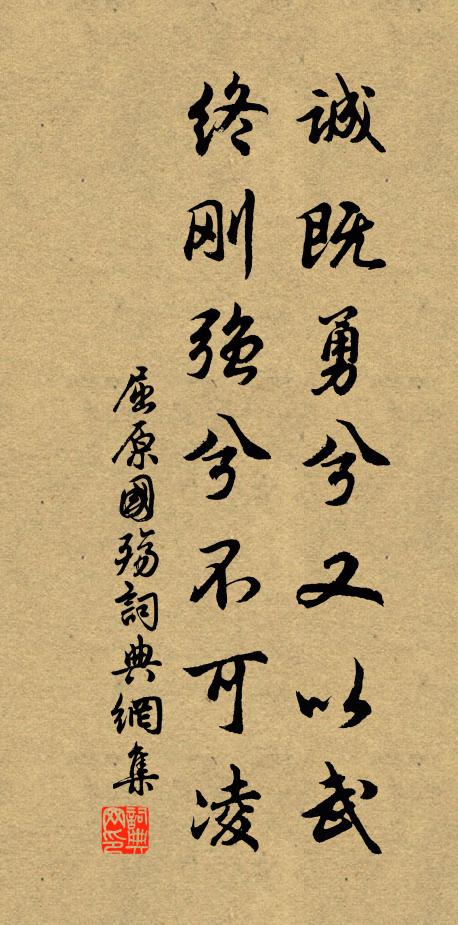 誠既勇兮又以武
终刚強兮不可凌
屈原國殤詞典網集
詞典网印